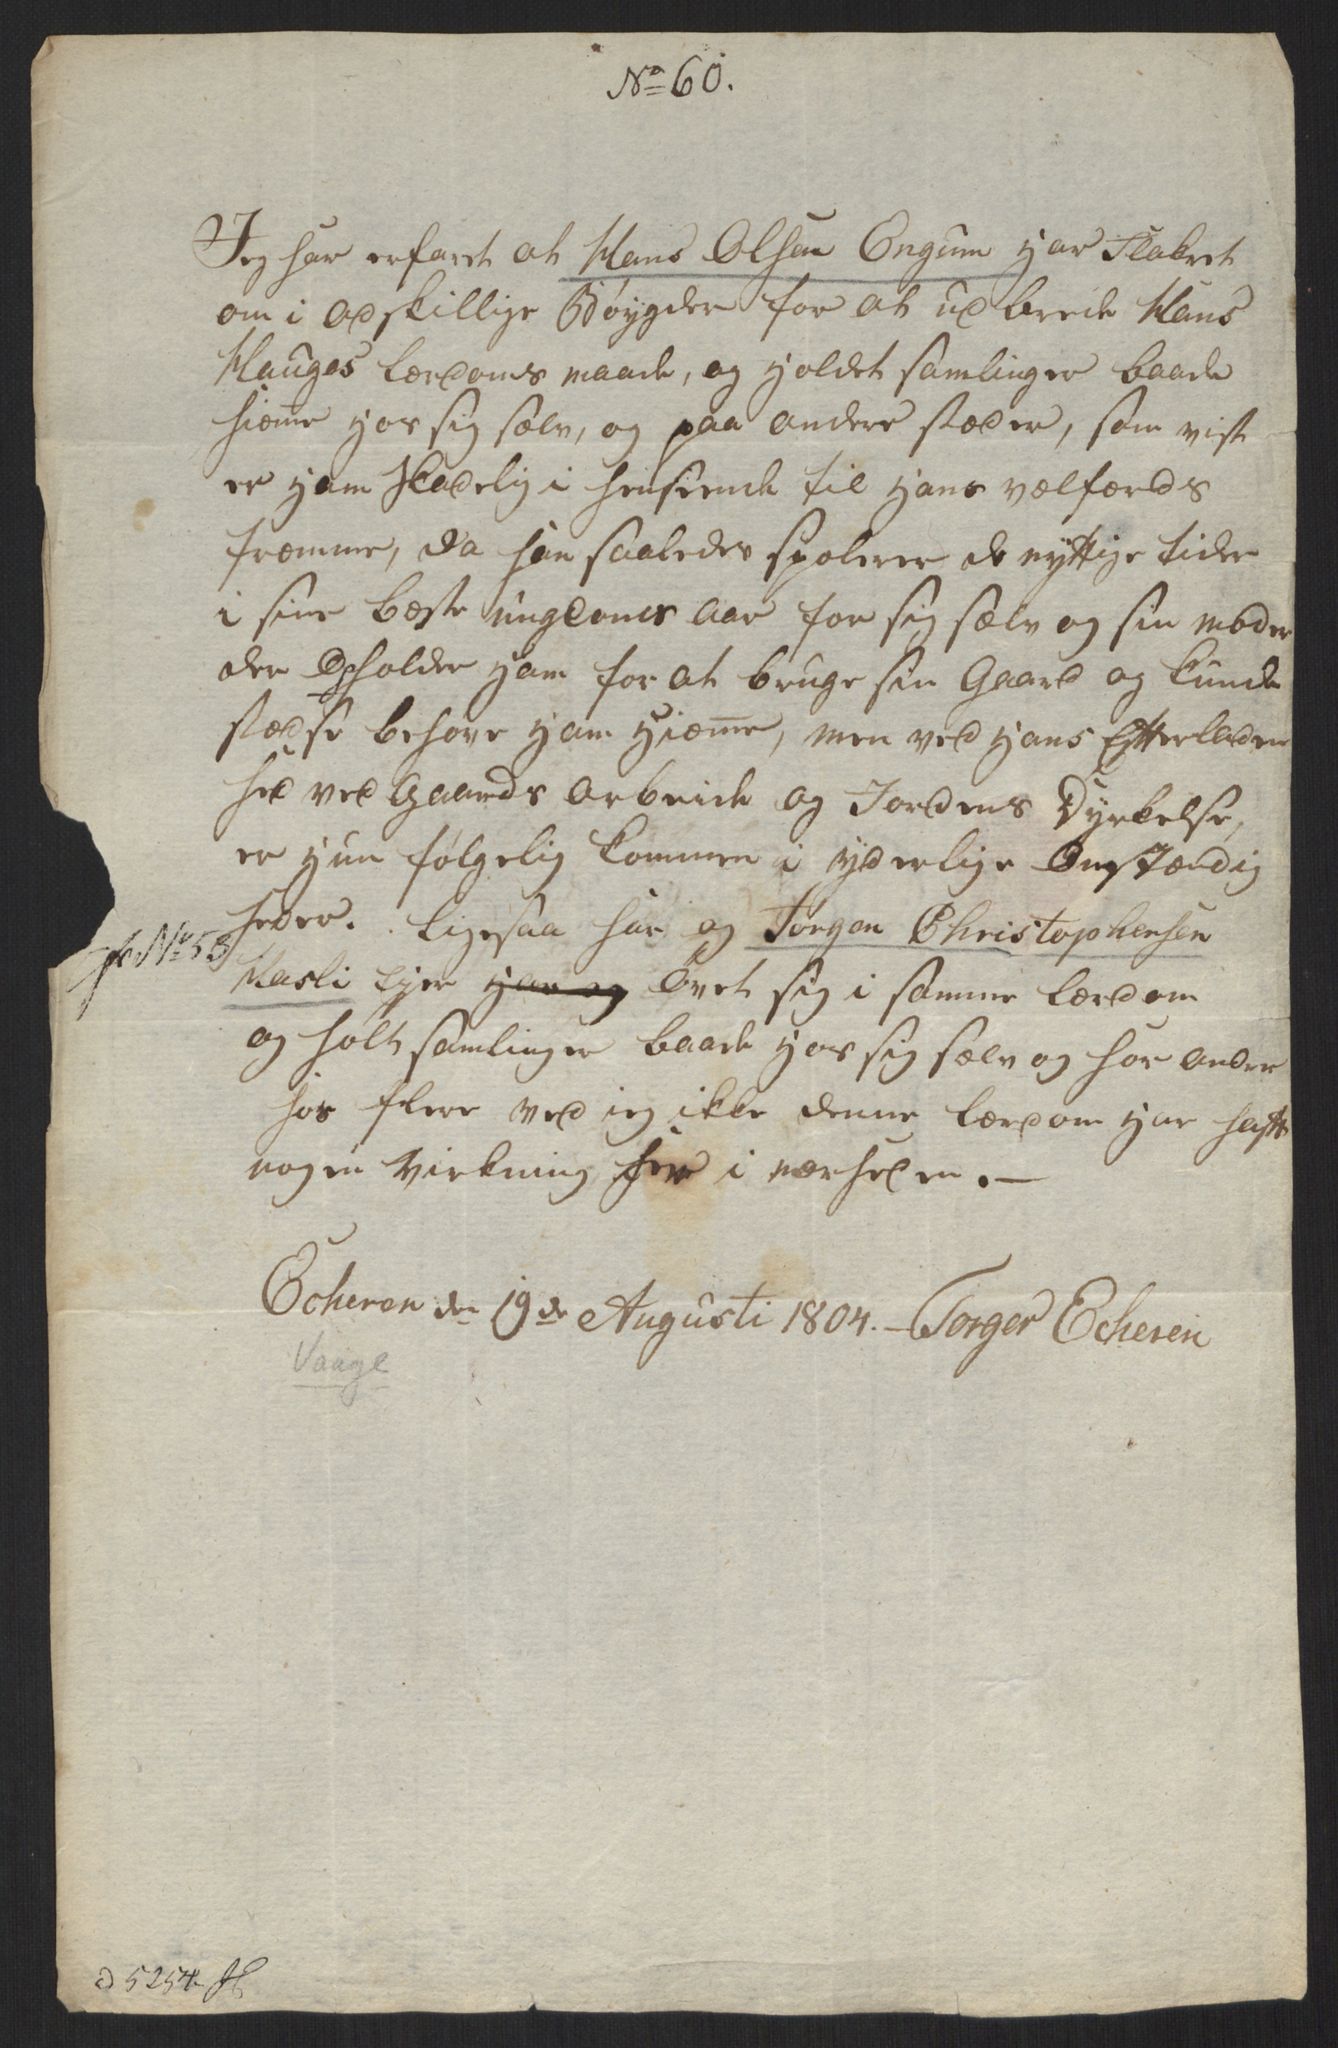 No 60.
Jeg har erfaret at Hans Olsen Engum har Flakret
om i adskillige Böygder for at udbrede Hans
Hauges lærdoms maade, og holdet samlinger baade
hiem̅e hos sig sælv, og paa andere stæder, som vist
er ham skadelig i henseende til hans vælfærds
fræmme, da han saaledes spolerer de nyttige tider
i sine bæste ungdoms aar for sig sælv og sin moder
der Opholder ham for at bruge sin Gaard og kunde
stædse behøve ham hiem̅e, men ved hans Efterladen
hed ved Gaards arbeide og Jordens Dyrkelse,
er hun følgelig kommen i yderlige Omstændig
heder. Ligesaa har og Jörgen Christophersen
Hasli hjer har og övet sig i samme lærdom
og holt samlinger baade hos sig sælv og hos andre
hos flere ved ieg ikke denne lærdom har haft
nogen Virkning her i nærheden. —
Echeren den 19de Augusti 1804. — Torger Echeren
Vaage
No 58
5254